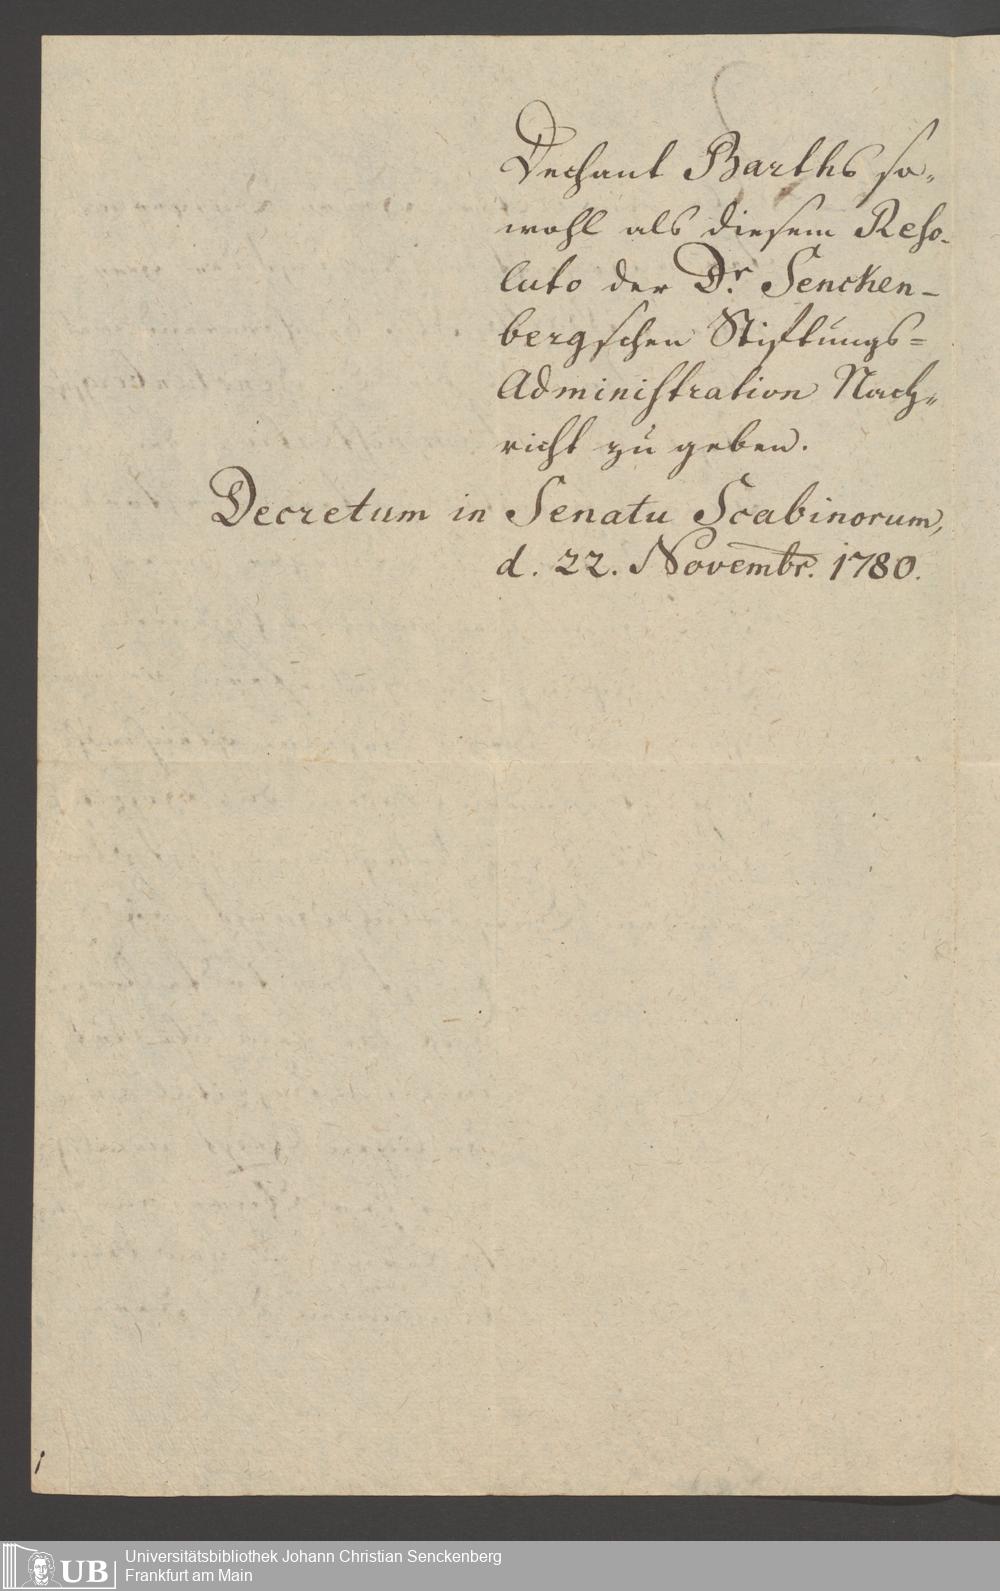 Dechant Barths so-
wohl als diesem Reso-
luto der Dr. Sencken-
bergschen Stiftungs=
Administration Nach-
richt zu geben.
Decretum in Senatu Scabinorum,
d. 22. Novembr. 1780.
UB
Universitätsbibliothek Johann Christian Senckenberg
Frankfurt am Main